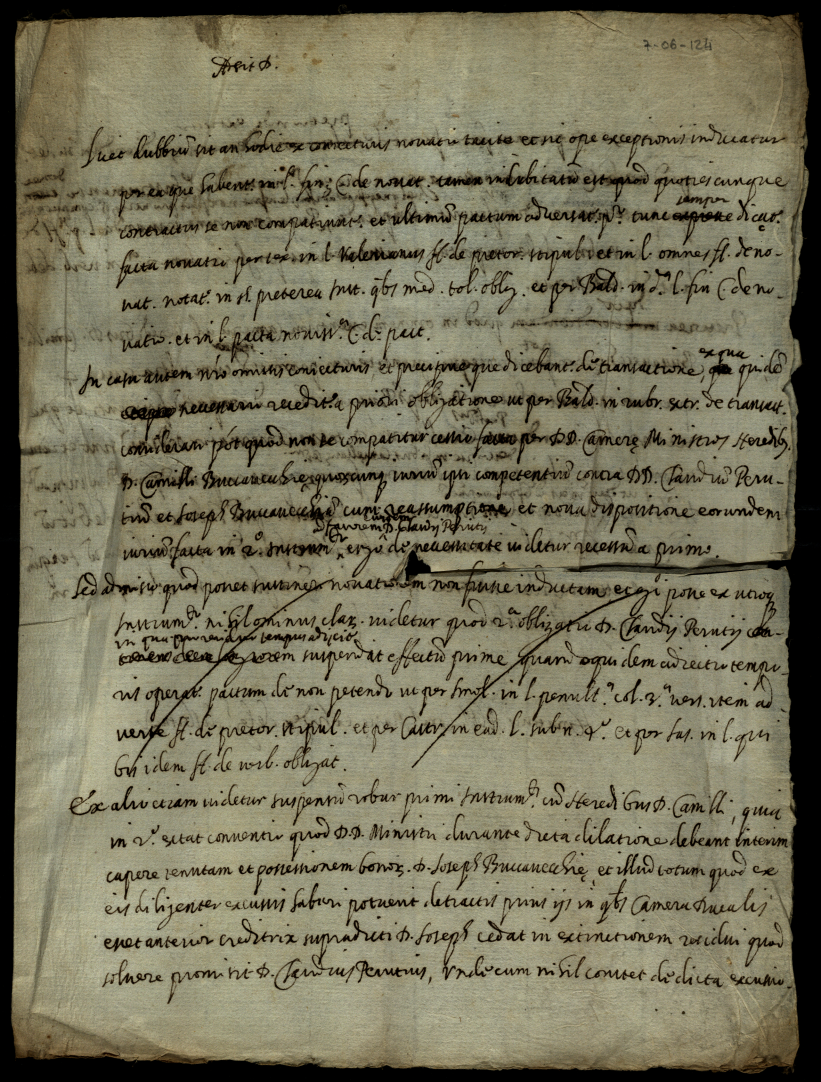 7-06-124
Licet dubbiũ sit an hodie ex coniecturis novatio tacite et sic ope exceptionis inducatur
per ea que habent. in l. fin; C. de novat. tamen indubitatũ est quod quotiescunque
semper
contractus se non compatiunt. et ultimũ pactum adversat. pº. tunc dicat.
facta novatio per tex. in l. Valerianus ff. de pretor. stipul. et in l. omnes ff. de no-
vat. notat. in §. preterea Inst. qbs mod. tol. oblig. et per Bald. in d. l. fin C. de no-
vatio. et in l. pacta noviss. C. de pact.
ex qua
In casu autem nro omissis coniecturis et precipue que dicebant. de transactione, quidẽ
necessario recedit. a priori obligatione ut per Bald. in rubr. extr. de transact.
considerari pot quod non se compatitur cessio per DD. Camerę Ministros Heredib,
D. Camilli Buccavecchię quorcunq iuriũ ipsi competentiũ contra DD. Claudiũ Peru-
tiũ et Joseph Buccavecchiã cum reassumptione et nova dispositione eorundem
favorem D. Claudij Perutij
iuriũ facta in 2º. Instrum. ergo de necessitate videtur recessũ a primo.
Sed admisso quod posset sustineri novationem non fuisse inductam et ergo posse ex utroq
Instrum. nihilominus clar. videtur quod 2ª. obligatio D. Claudij Perutij
in qua tempus adijcit.
suspendat effectũ prime quandoquidem adiectio tempo-
ris operat. pactum de non petendo ut per Imol. in l. penult. col. 2. vers. item ad-
verte ff. de pretor. stipul. et per Castr. in ead. l. sub n. 4. et per Jas. in l. qui
bis idem ff. de verb. obligat.
Ex alio etiam videtur suspensũ robur primi Instrum. cũ Heredibus D. Camilli, quia
in 2º. extat conventio quod DD. Ministri durante dicta dilatione debeant interim
capere tenutam et possessionem bonor. D. Joseph Buccavecchię et illud totum quod ex
eis diligenter excussis haberi potuerit detractis prius ijs in qbs Camera Ducalis
esset anterior creditrix supradicti D. Joseph cedat in extinctionem residui quod
solvere promisit D. Claudius Perutius, Unde cum nihil constet de dicta excussio-